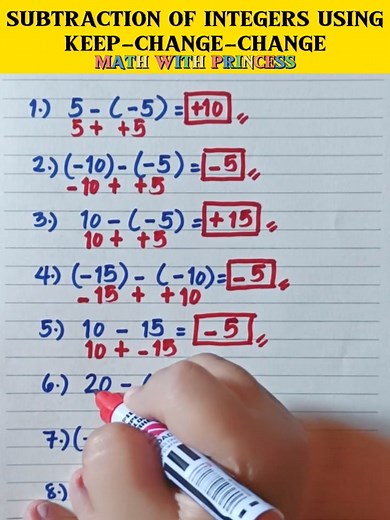 SUBTRACTION OF INTEGERS USING
KEEP-CHANGE-CHANGE
MATH WITH PRINCESS
1.) 5 - (-5) = +10
5 + +5
2.) (-10) - (-5) = -5
-10 + +5
3.) 10 - (-5) = +15
10 + +5
4.) (-15) - (-10) = -5
-15 + +10
5.) 10 - 15 = -5
10 + -15
6.) 20 - (
7.) (-
8.)